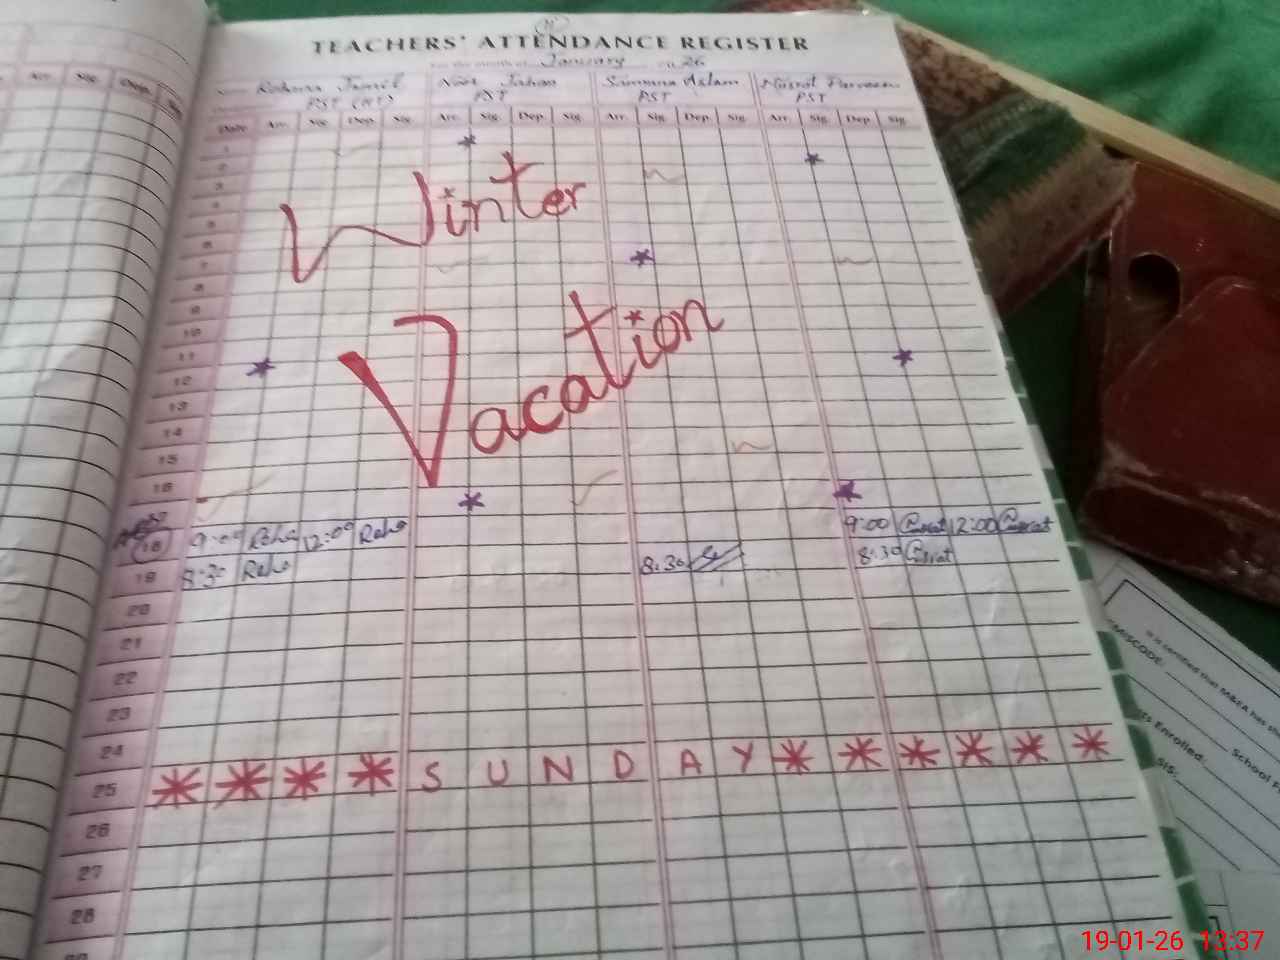 TEACHERS' ATTENDANCE REGISTER
For the month of January 26
Rehana Jamil Noor Jahan Samina Aslam Nusrat Parveen
PST (HT) PST PST PST
Arr. Sig. Dep.
Date Arr. Sig. Dep. Sig. Arr. Sig. Dep. Sig. Arr. Sig. Dep. Sig. Arr. Sig. Dep. Sig.
1
2
3
4
5
6
7
8
9
10
11
12
13
14
15
16
Winter
Vacation
18 9:00 Reha 12:00 Reha 9:00 Nusrat 12:00 Nusrat
19 8:30 Reha 8:30 8:30 Nusrat
20
21
22
23
24
25 SUNDAY
26
27
28
It is certified that M&EA has
EMISCODE:
School
ts Enrolled:
SIS:
19-01-26 13:37